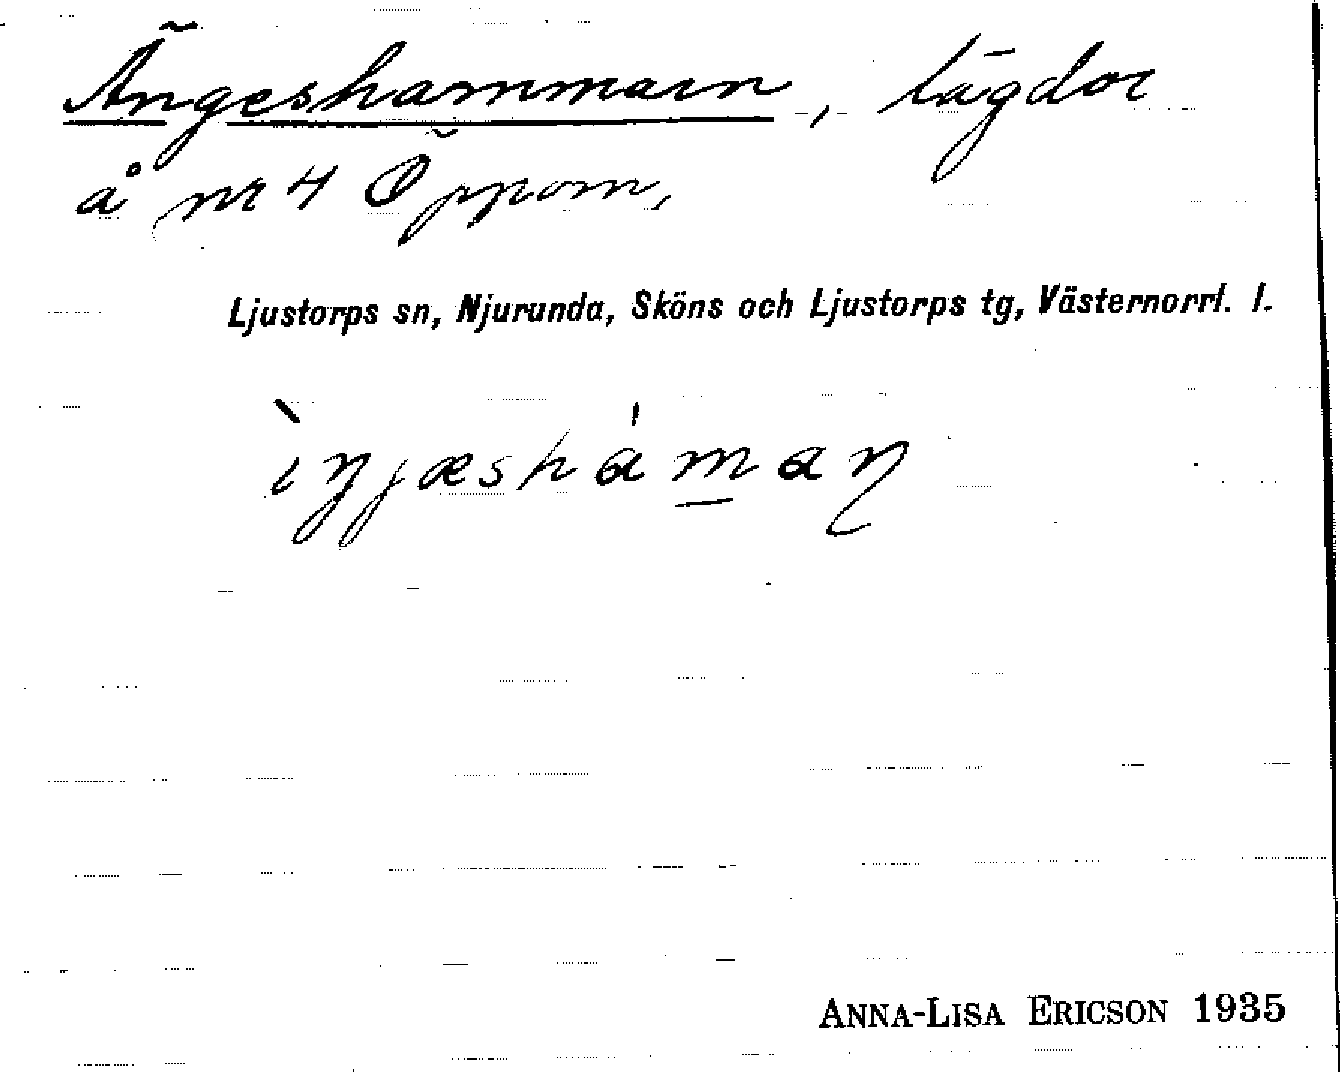 Ängeshammarn, lägdor
å nr 4 Öppom,
Ljustorps sn, Njurunda, Sköns och Ljustorps tg, Västernorrl. l.
ìŋjæshá̍m̲aɳ
ANNA-LISA ERICSON 1935